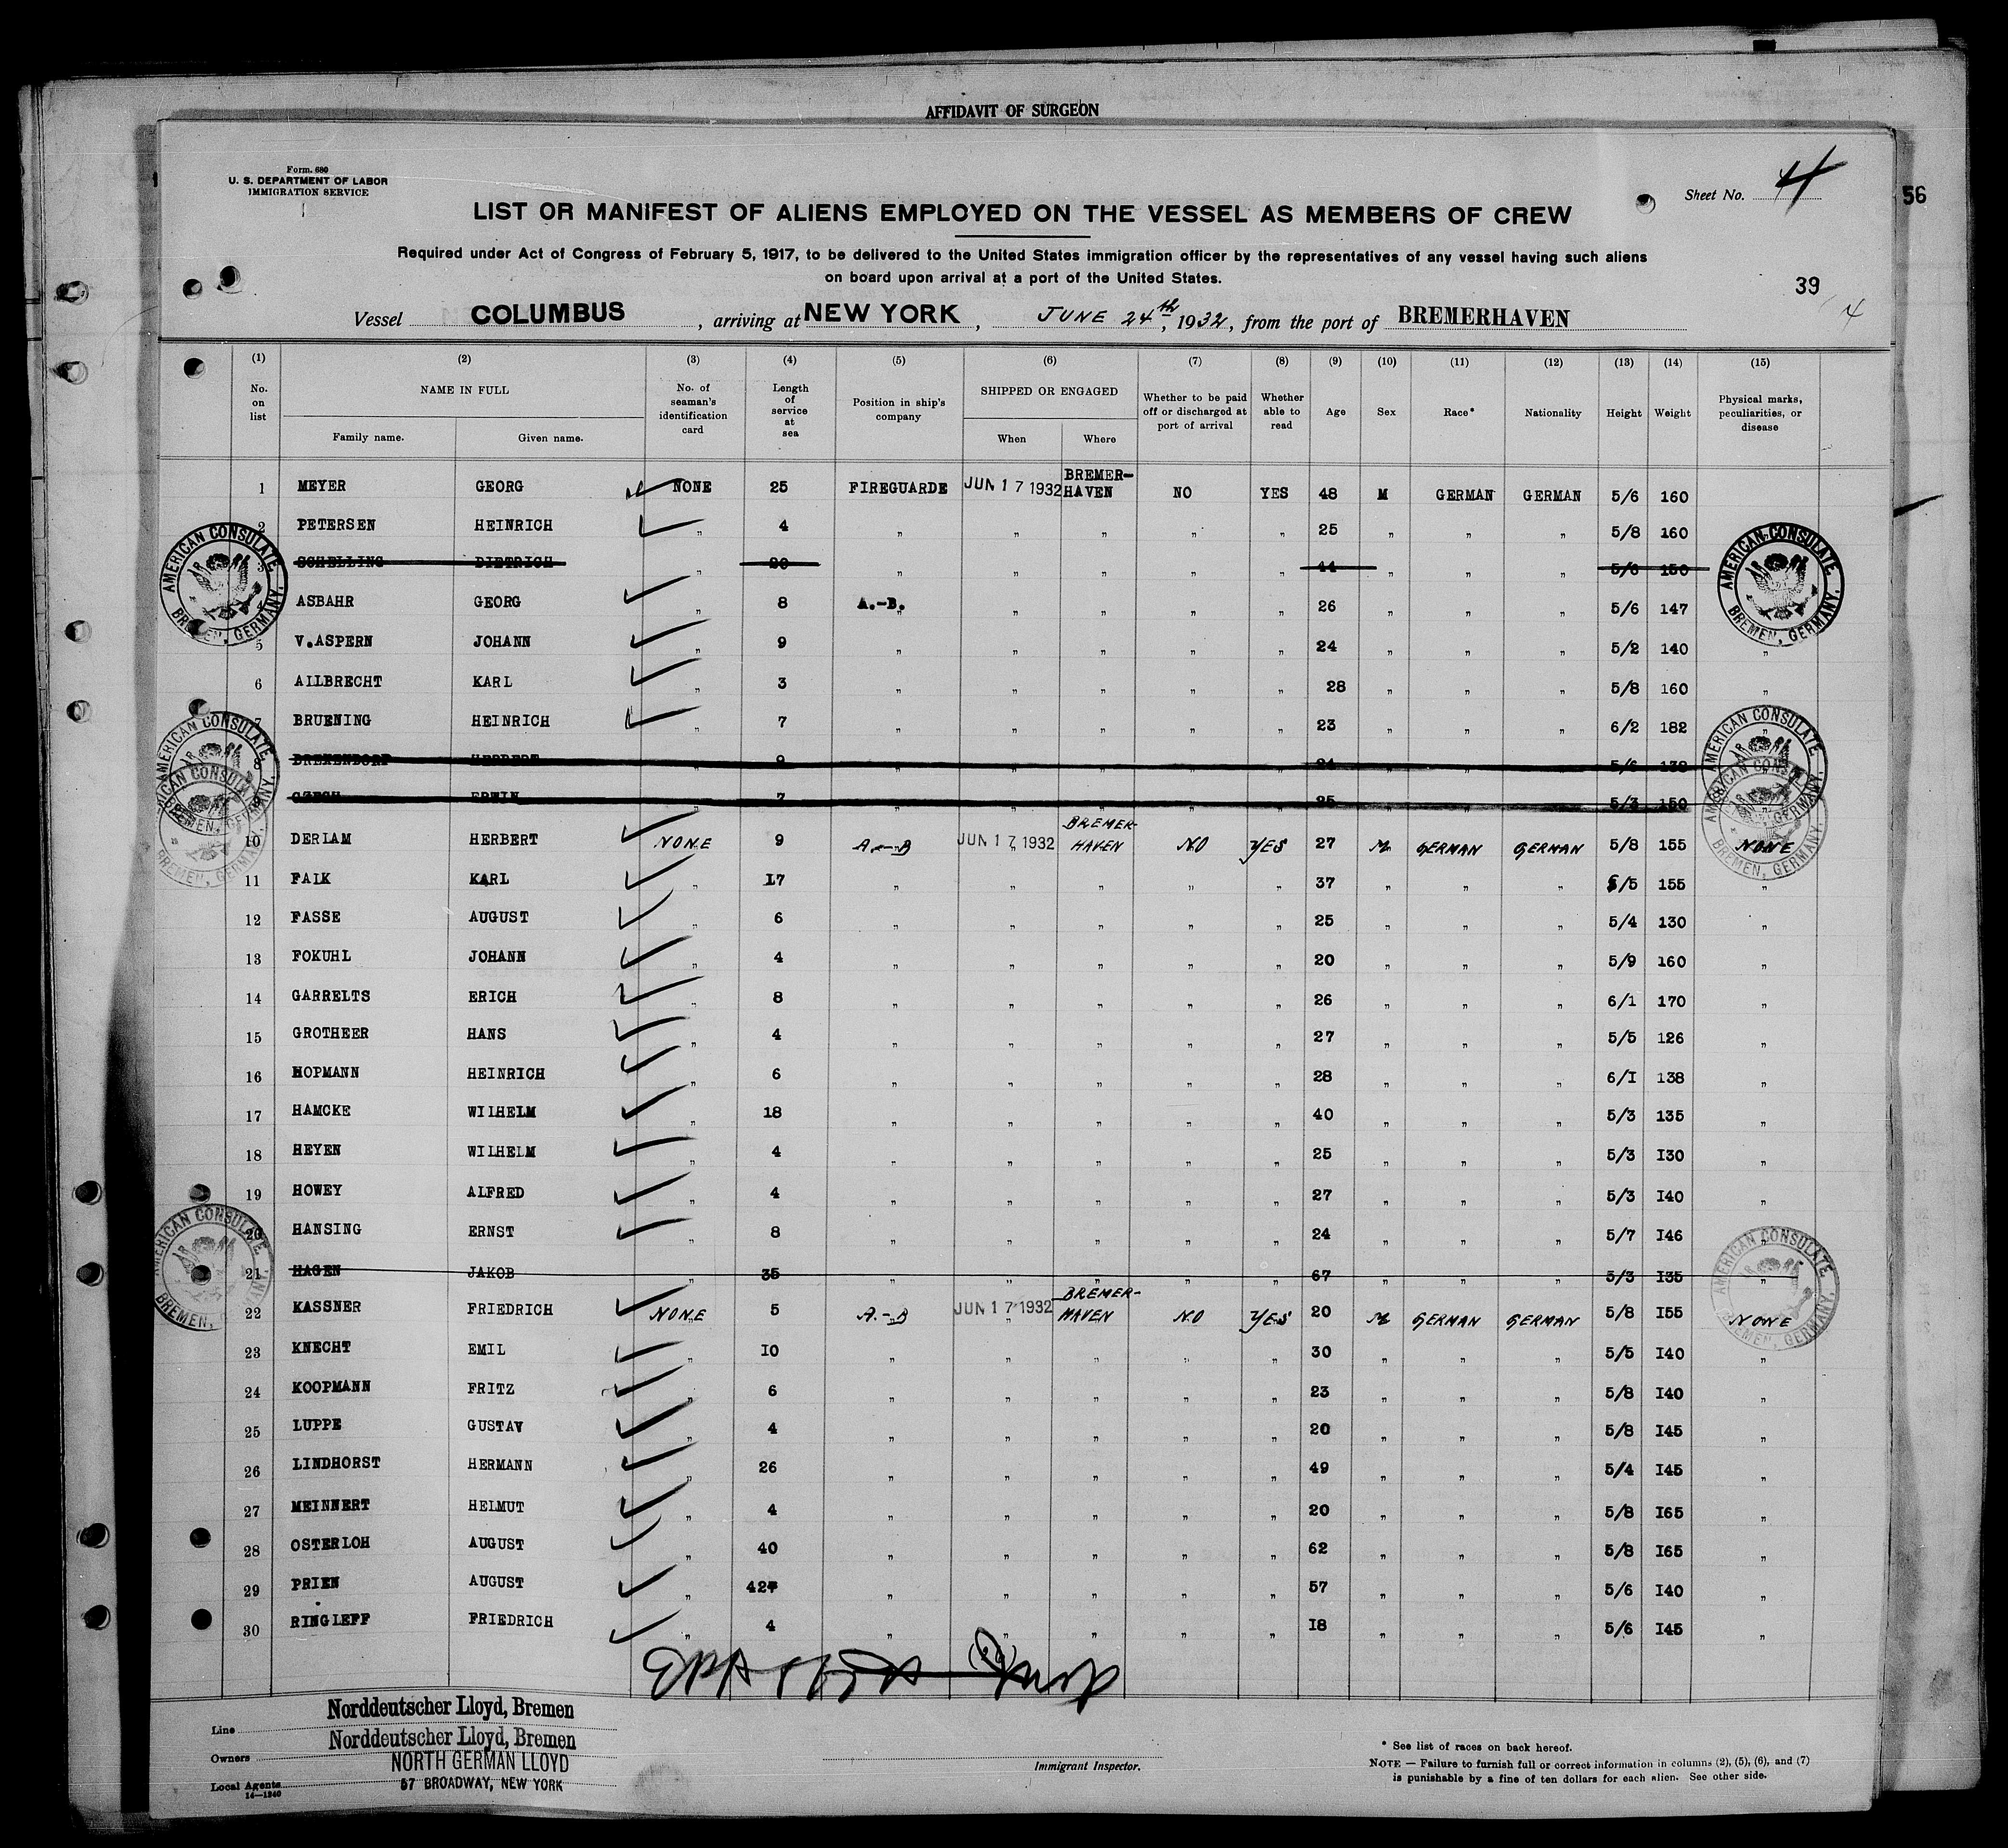 AFFIDAVIT OF SURGEON
Form. 680
U. S. DEPARTMENT OF LABOR
IMMIGRATION SERVICE
Sheet No. 4
56
LIST OR MANIFEST OF ALIENS EMPLOYED ON THE VESSEL AS MEMBERS OF CREW
Required under Act of Congress of February 5, 1917, to be delivered to the United States immigration officer by the representatives of any vessel having such aliens
on board upon arrival at a port of the United States.
39
4
Vessel COLUMBUS, arriving at NEW YORK, JUNE 24th, 1932, from the port of BREMERHAVEN
(1) (2) (3) (4) (5) (6) (7) (8) (9) (10) (11) (12) (13) (14) (15)
No. on list NAME IN FULL Family name. Given name. No. of seaman's identification card Length of service at sea Position in ship's company SHIPPED OR ENGAGED When Where Whether to be paid off or discharged at port of arrival Whether able to read Age Sex Race* Nationality Height Weight Physical marks, peculiarities, or disease
1 MEYER GEORG NONE 25 FIREGUARDE JUN 17 1932 BREMER-HAVEN NO YES 48 M GERMAN GERMAN 5/6 160
2 PETERSEN HEINRICH „ 4 „ „ „ „ „ 25 „ „ „ 5/8 160
3 SCHELLING DIETRICH „ 20 „ „ „ „ „ 44 „ „ „ 5/6 150
4 ASBAHR GEORG „ 8 A.-B. „ „ „ „ 26 „ „ „ 5/6 147
5 V.ASPERN JOHANN „ 9 „ „ „ „ „ 24 „ „ „ 5/2 140 „
6 AILBRECHT KARL „ 3 „ „ „ „ „ 28 „ „ „ 5/8 160 „
7 BRUENING HEINRICH „ 7 „ „ „ „ „ 23 „ „ „ 6/2 182 „
8 HERBERT „ 9 „ „ „ „ „ 24 „ „ „ 5/6 138
CZECH ERWIN „ 7 „ „ „ „ „ 25 „ „ „ 5/3 150
10 DERLAM HERBERT NONE 9 A.-B JUN 17 1932 BREMER-HAVEN NO YES 27 M GERMAN GERMAN 5/8 155 NONE
11 FAIK KARL „ 17 „ „ „ „ „ 37 „ „ „ 5/5 155 „
12 FASSE AUGUST „ 6 „ „ „ „ „ 25 „ „ „ 5/4 130 „
13 FOKUHL JOHANN „ 4 „ „ „ „ „ 20 „ „ „ 5/9 160 „
14 GARRELTS ERICH „ 8 „ „ „ „ „ 26 „ „ „ 6/1 170 „
15 GROTHEER HANS „ 4 „ „ „ „ „ 27 „ „ „ 5/5 126 „
16 HOPMANN HEINRICH „ 6 „ „ „ „ „ 28 „ „ „ 6/I 138 „
17 HAMCKE WILHELM „ 18 „ „ „ „ „ 40 „ „ „ 5/3 135 „
18 HEYEN WILHELM „ 4 „ „ „ „ „ 25 „ „ „ 5/3 I30 „
19 HOWEY ALFRED „ 4 „ „ „ „ „ 27 „ „ „ 5/3 I40 „
20 HANSING ERNST „ 8 „ „ „ „ „ 24 „ „ „ 5/7 I46 „
21 HAGEN JAKOB „ 35 „ „ „ „ „ 67 „ „ „ 5/3 I35 „
22 KASSNER FRIEDRICH NONE 5 A.-B JUN 17 1932 BREMER-HAVEN NO YES 20 M GERMAN GERMAN 5/8 I55 NONE
23 KNECHT EMIL „ IO „ „ „ „ „ 30 „ „ „ 5/5 I40 „
24 KOOPMANN FRITZ „ 6 „ „ „ „ „ 23 „ „ „ 5/8 I40 „
25 LUPPE GUSTAV „ 4 „ „ „ „ „ 20 „ „ „ 5/8 I45 „
26 LINDHORST HERMANN „ 26 „ „ „ „ „ 49 „ „ „ 5/4 I45 „
27 MEINNERT HELMUT „ 4 „ „ „ „ „ 20 „ „ „ 5/8 I65 „
28 OSTERLOH AUGUST „ 40 „ „ „ „ „ 62 „ „ „ 5/8 I65 „
29 PRIEN AUGUST „ 42 „ „ „ „ „ 57 „ „ „ 5/6 I40 „
30 RINGLEFF FRIEDRICH „ 4 „ „ „ „ „ I8 „ „ „ 5/6 I45 „
AMERICAN CONSULATE BREMEN, GERMANY.
AMERICAN CONSULATE BREMEN, GERMANY.
AMERICAN CONSULATE BREMEN, GERMANY.
AMERICAN CONSULATE BREMEN, GERMANY.
AMERICAN CONSULATE BREMEN, GERMANY.
AMERICAN CONSULATE BREMEN, GERMANY.
Line Norddeutscher Lloyd, Bremen
Owners Norddeutscher Lloyd, Bremen
NORTH GERMAN LLOYD
Local Agents 57 BROADWAY, NEW YORK
14—1240
Immigrant Inspector.
* See list of races on back hereof.
NOTE — Failure to furnish full or correct information in columns (2), (5), (6), and (7)
is punishable by a fine of ten dollars for each alien. See other side.